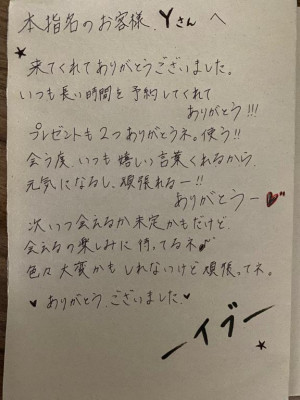 本指名のお客様、Yさん へ
来てくれてありがとうございました。
いつも長い時間を予約してくれて
ありがとう!!!
プレゼントも2つありがとうネ。使う!!
会う度、いつも嬉しい言葉くれるから、
元気になるし、頑張れるー!!
ありがとうー♥
次いつ会えるか未定かもだけど、
会えるの楽しみに待ってるネ♪
色々大変かもしれないけど頑張ってネ。
♥ありがとう、ございました♥
ーイブー